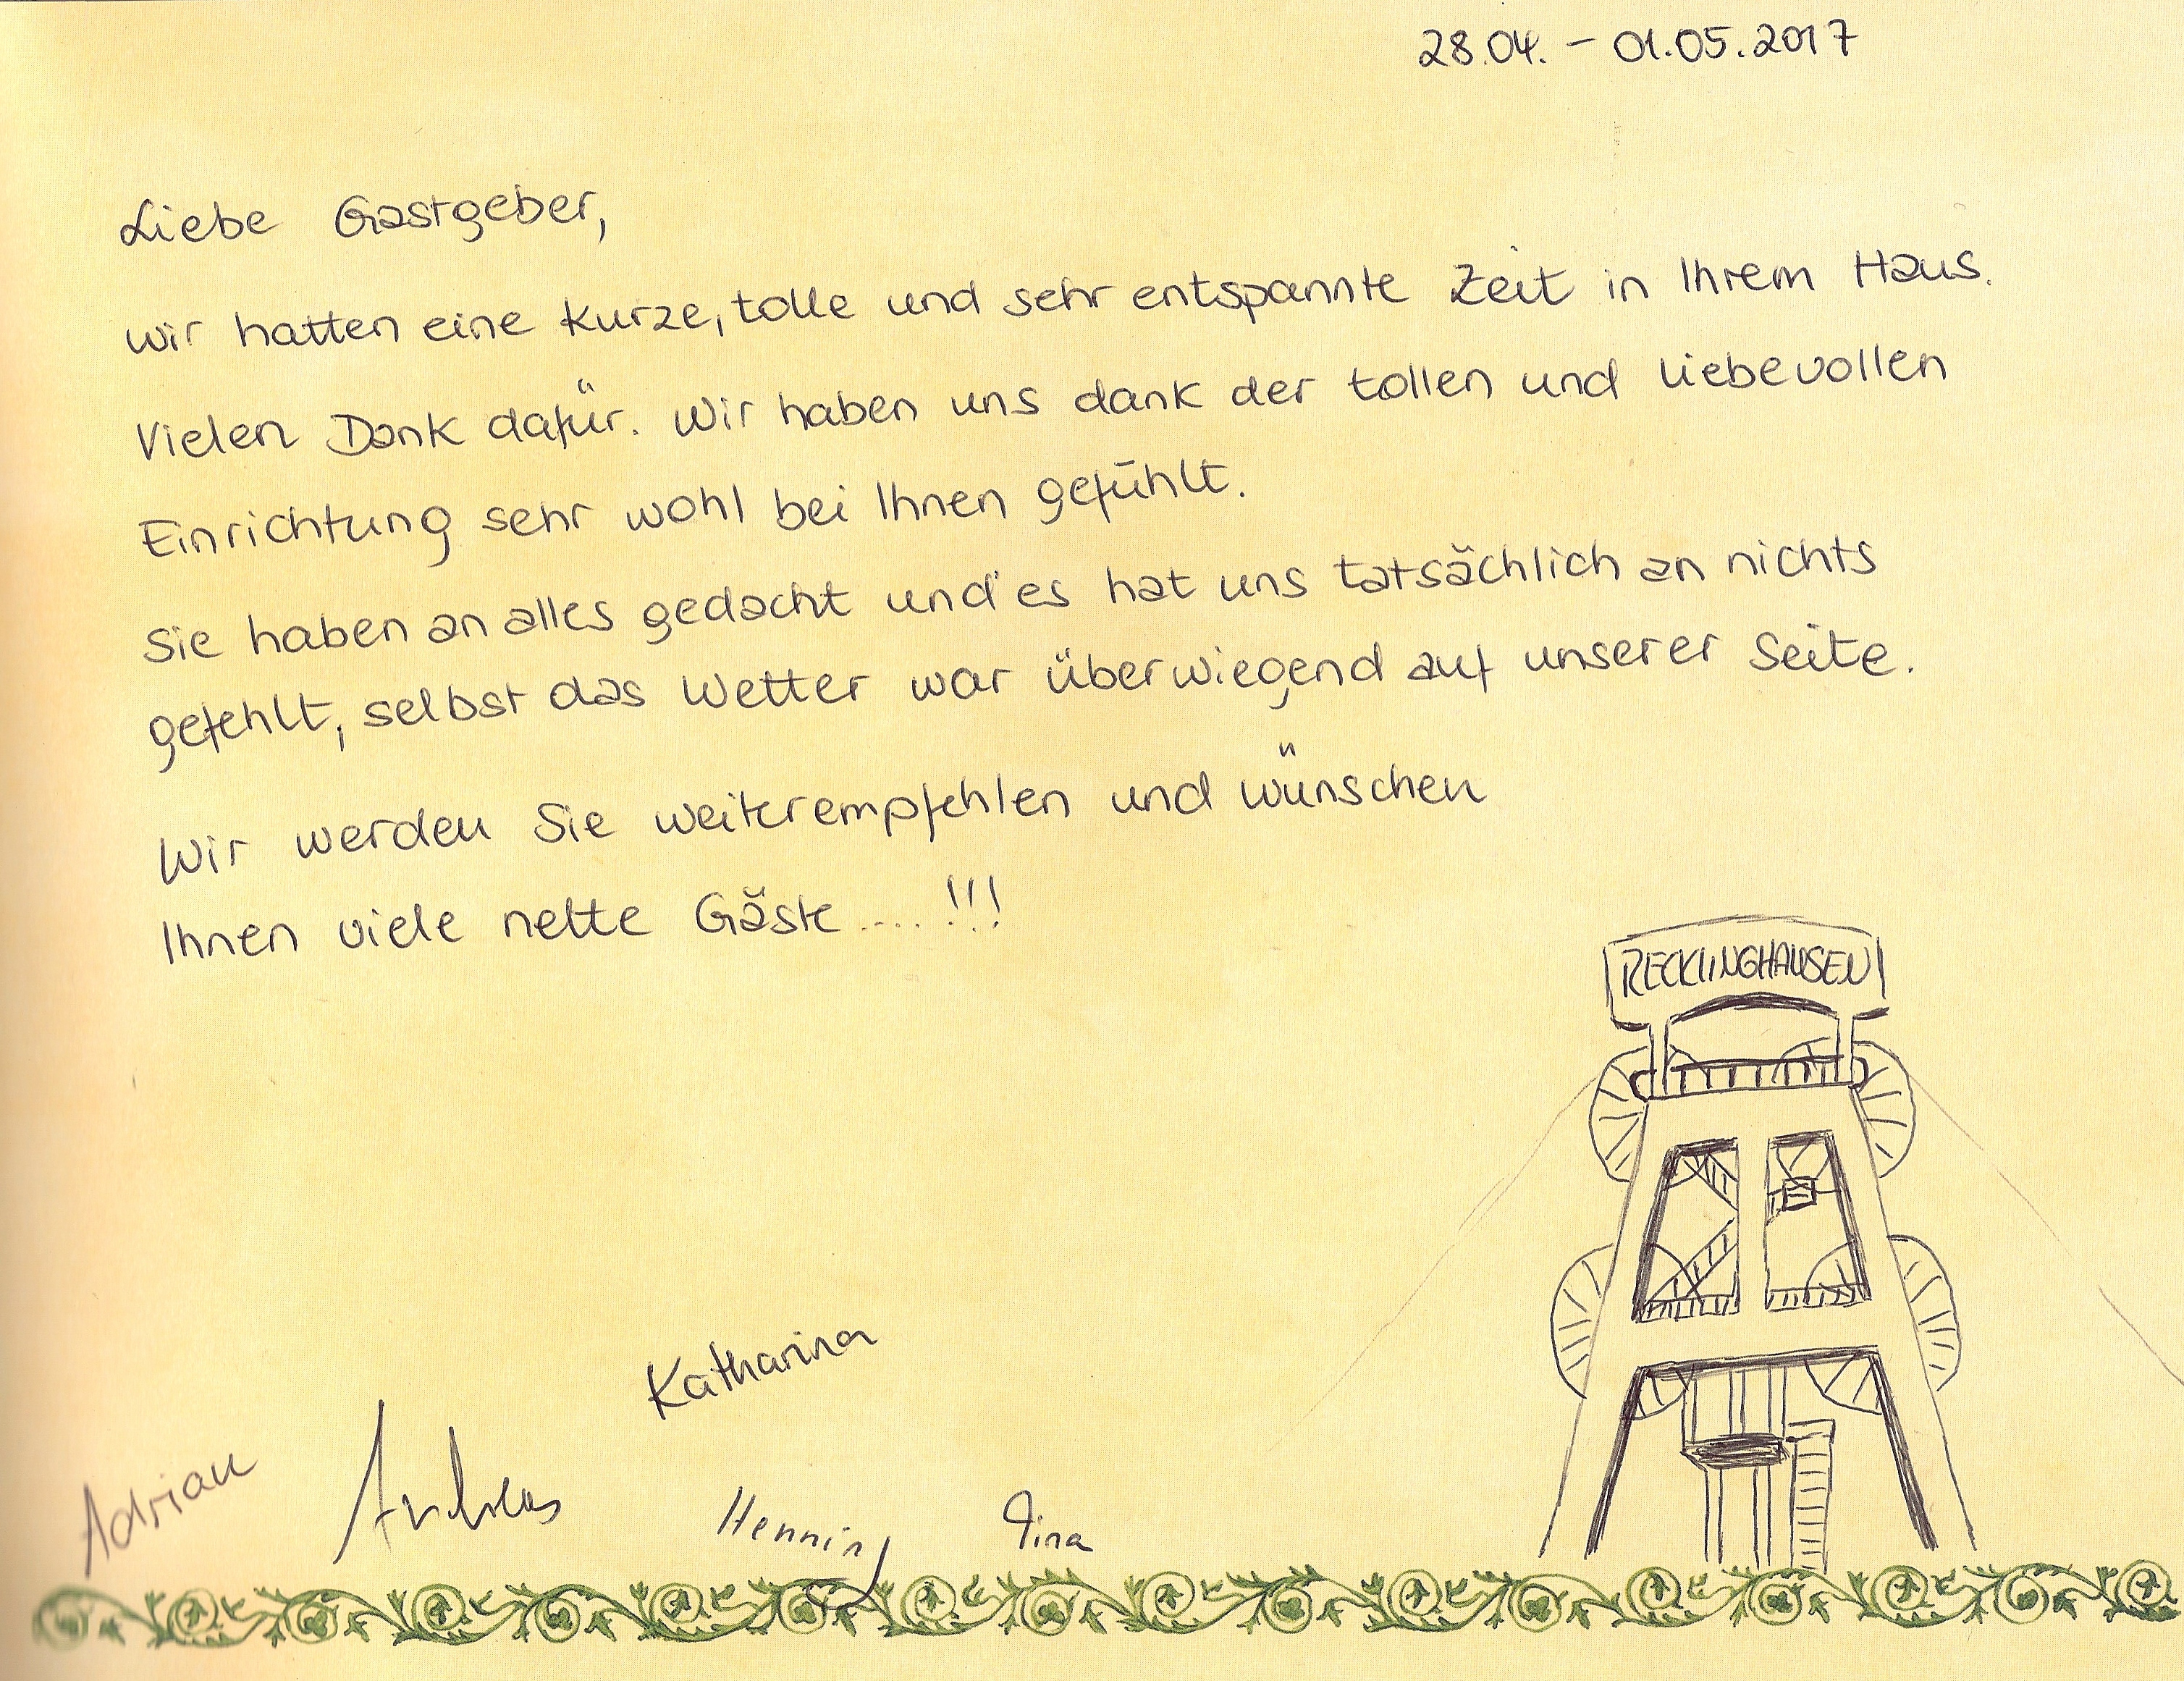 28.04. – 01.05.2017
Liebe Gastgeber,
wir hatten eine kurze, tolle und sehr entspannte Zeit in Ihrem Haus.
Vielen Dank dafür. Wir haben uns dank der tollen und liebevollen
Einrichtung sehr wohl bei Ihnen gefühlt.
Sie haben an alles gedacht und es hat uns tatsächlich an nichts
gefehlt, selbst das Wetter war überwiegend auf unserer Seite.
Wir werden Sie weiterempfehlen und wünschen
Ihnen viele nette Gäste .... !!!
RECKLINGHAUSEN
Katharina
Adrian Andreas Henning Tina